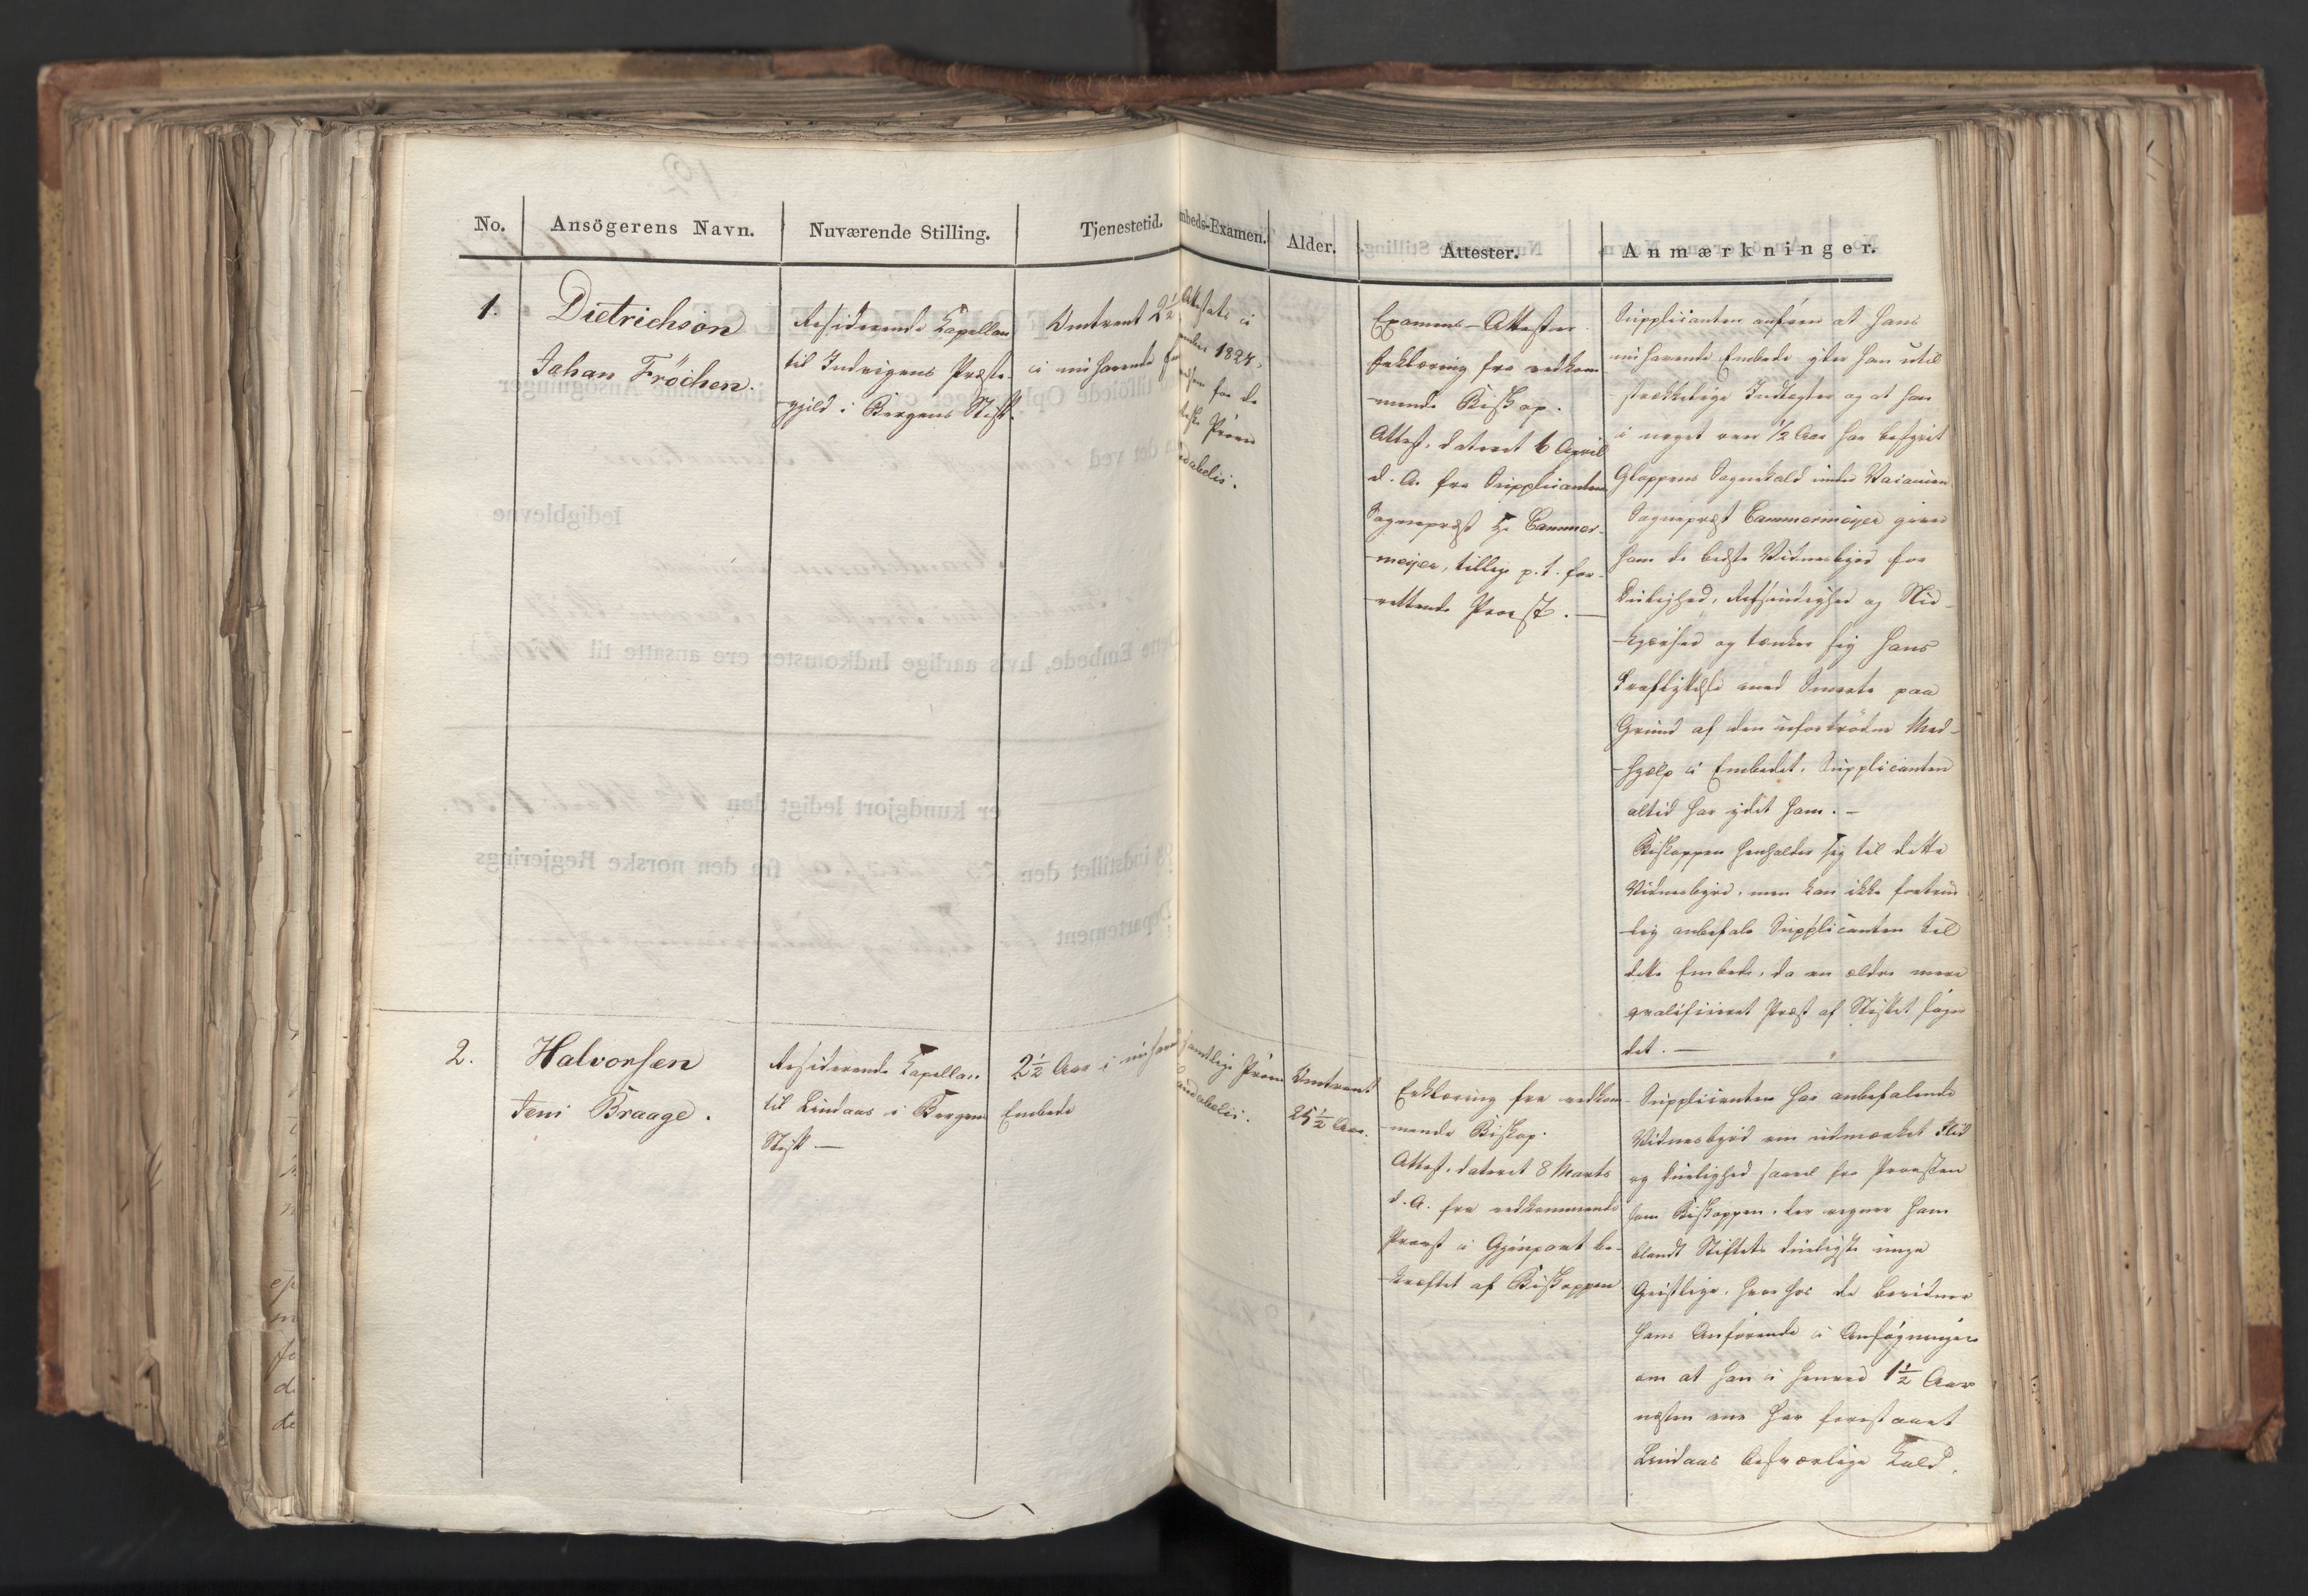 No. Ansögerens Navn. Nuværende Stilling. Tjenestetid. mbeds-Examen. Alder. Attester. Anmærkninger.
1.
Dietrichson
Johan Fröchen.
Residerende Capellan
til Indvigens Præste-
gjæld i Bergens Stift.
Omtrent 2½
i nuhavende
Attestats i
ember 1827,
for de
Prøver
dabelis.
Examens-Attester.
Erklæring fra vedkom
mende Biskop.
Attest, dateret 6 April
d. A. fra Supplicanten
Sognepræst Hr Cammer-
meyer, tillige p.t. for-
rettende Provst. —
Supplicanten anfører at hans
nuhavende Embede yder ham util
strækkelige Indtægter og at han
i noget over ½ Aar har bestyret
Gloppens Sognekald under Vacancen
Sognepræst Cammermeyer giver
ham de bedste Vidnesbyrd for
Duelighed, Retsindighed og Nid-
kjærhed og tænker sig hans
Fraflyttelse med Smerte paa
Grund af den ufortrødne Med-
hjælp i Embedet, Supplicanten
altid har ydet ham. —
Biskoppen henholder sig til dette
Vidnesbyrd, men kan ikke fortrin
lig anbefale Supplicanten til
dette Embede, da en ældre mere
qvalificeret Præst af Stiftet søger
det. —
2.
Halvorsen
Jens Braage.
Residerende Capellan
til Lindaas i Bergens
Stift —
2½ Aar i nuhav
Embede
samtlige Prøver
laudabelis.
Omtrent
25½ Aar.
Erklæring fra vedkom-
mende Biskop.
Attest, dateret 8 Marts
d. A. fra vedkommende
Provst i Gjenpart be-
kræftet af Biskoppen
Supplicanten har anbefalende
Vidnesbyrd om udmærket Flid
og Duelighed saavel fra Provsten
som Biskoppen, der regner ham
blandt Stiftets dueligste unge
Geistlige, hvorhos de bevidner
hans Anførende i Ansøgningen
om at han i henved 1½ Aar
næsten ene har forestaaet
Lindaas besværlige Kald.